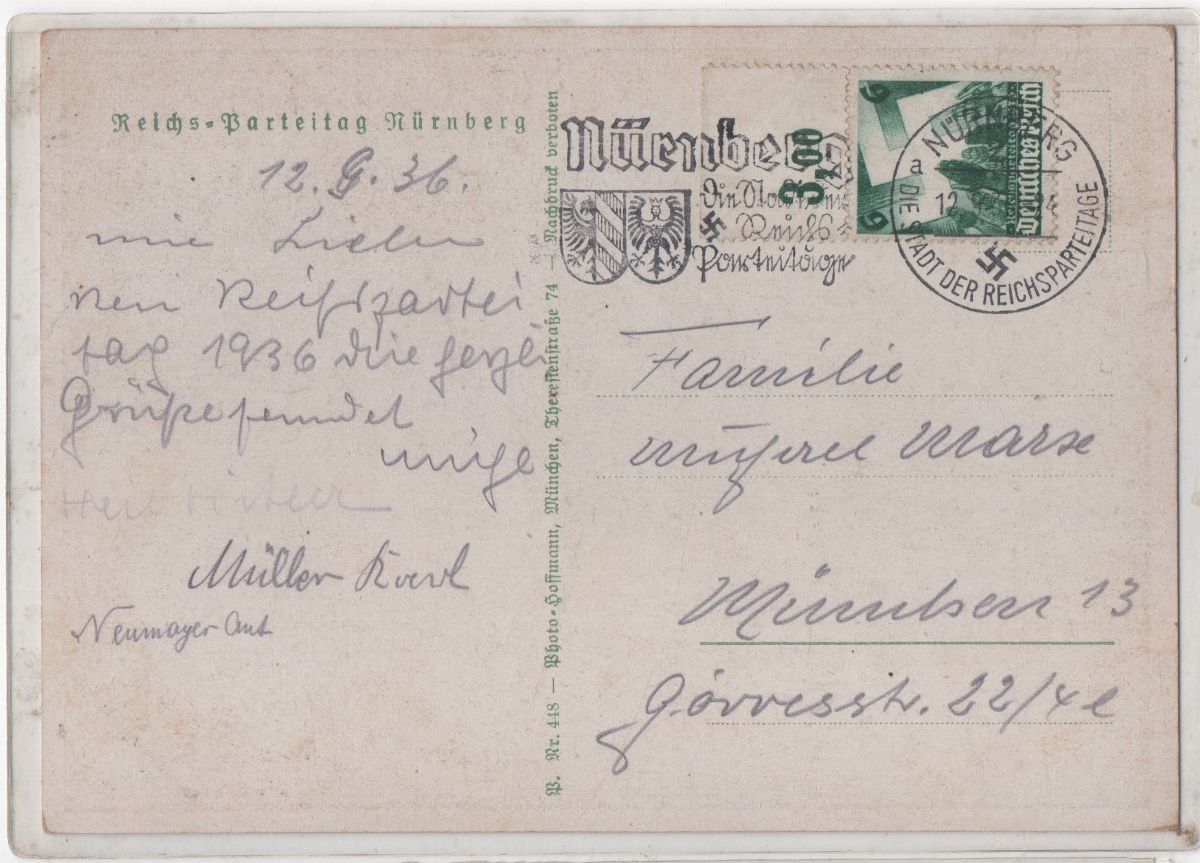 Reichs-Parteitag Nürnberg
12. 9. 36.
Reichspartei
tag 1936 die herzli
Grüße sendet
Heil Hitler
Müller Karl
Neumayer Ant
P. Nr. 448 — Photo-Hoffmann, München, Theresienstraße 74 — Nachdruck verboten
Nürnberg
Die Stadt der
Reichs
Parteitage
3,00
6
6
Deutsches Reich
NÜRNBERG
2
a
12
24
DIE STADT DER REICHSPARTEITAGE
Familie
Marx
München 13
Görresstr. 22/4